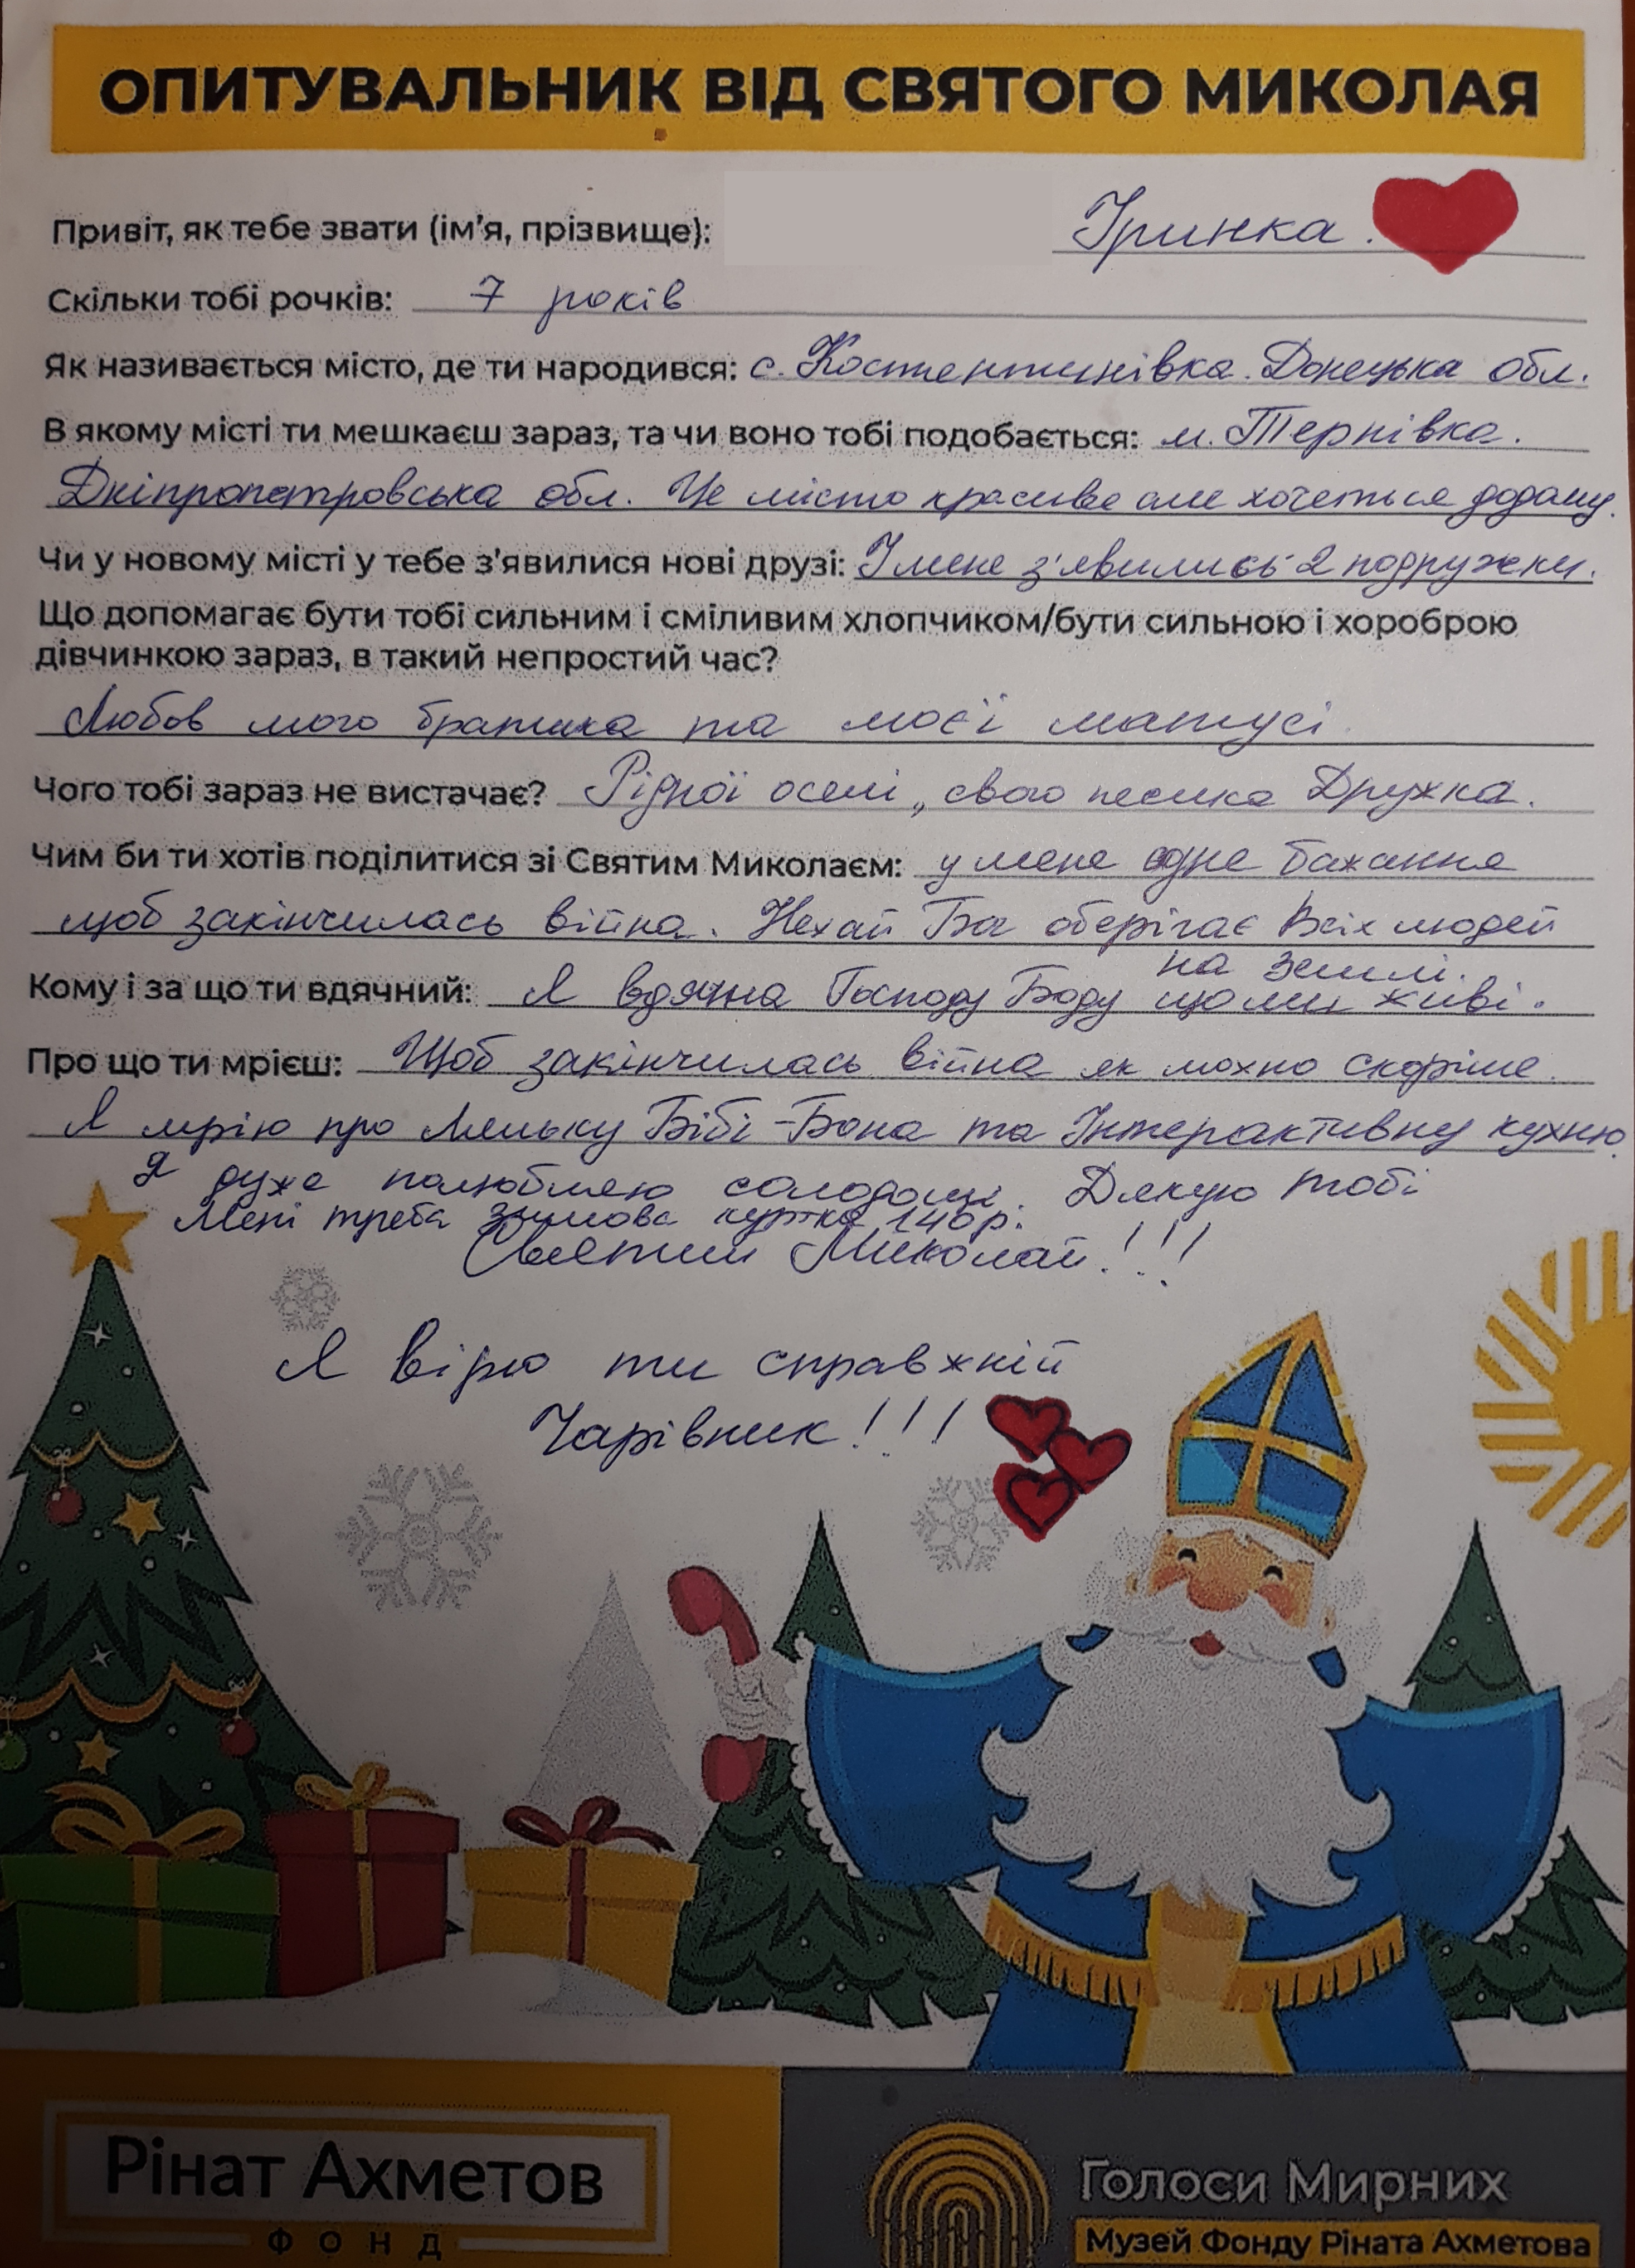 ОПИТУВАЛЬНИК ВІД СВЯТОГО МИКОЛАЯ
Привіт, як тебе звати (ім'я, прізвище): Іринка.
Скільки тобі рочків: 7 років
Як називається місто, де ти народився: с. Костентинівка. Донецька обл.
В якому місті ти мешкаєш зараз, та чи воно тобі подобається: м. Тернівка.
Дніпропетровська обл. Це місто красиве але хочеться додому.
Чи у новому місті у тебе з'явилися нові друзі: І мене з'явились 2 подружки.
Що допомагає бути тобі сильним і сміливим хлопчиком/бути сильною і хороброю
дівчинкою зараз, в такий непростий час?
Любов мого братика та моєї матусі
Чого тобі зараз не вистачає? Рідної оселі, свого песика Дружка.
Чим би ти хотів поділитися зі Святим Миколаєм: у мене одне бажання
щоб закінчилась війна. Нехай Бог оберігає Всіх людей
на землі.
Кому і за що ти вдячний: Я вдячна Господу Богу що ми живі.
Про що ти мрієш: Щоб закінчилась війна як можно скоріше.
Я мрію про Ляльку Бібі-Бона та Інтерактивну кухню.
Я дуже полюбляю солодощі. Дякую тобі
Мені треба зимова куртка 140р.
Святий Миколай!!!
Я вірю ти справжній
Чарівник!!!
Рінат Ахметов
ФОНД
Голоси Мирних
Музей Фонду Ріната Ахметова